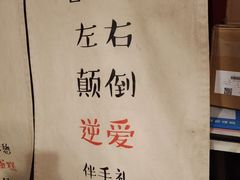 左右
颠倒
逆爱
伴手礼